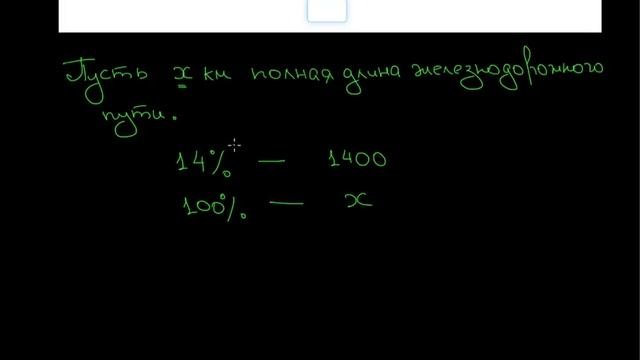 Пусть x км полная длина железнодорожного
пути.
14% — 1400
100% — x